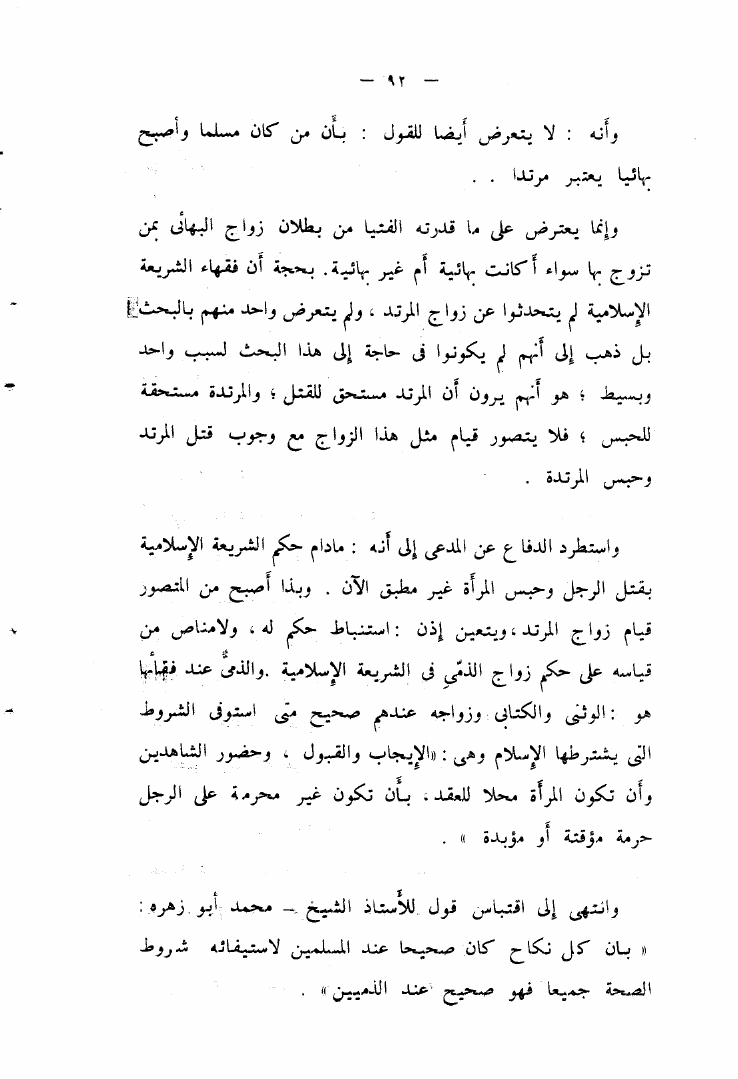 — ٩٢ —
وأنه : لا يتعرض أيضا للقول : بأن من كان مسلما وأصبح
بهائيا يعتبر مرتدا . .
وإنما يعترض على ما قدرته الفتيا من بطلان زواج البهائى بمن
تزوج بها سواء أكانت بهائية أم غير بهائية. بحجة أن فقهاء الشريعة
الإسلامية لم يتحدثوا عن زواج المرتد ، ولم يتعرض واحد منهم بالبحث
بل ذهب إلى أنهم لم يكونوا فى حاجة إلى هذا البحث لسبب واحد
وبسيط ؛ هو أنهم يرون أن المرتد مستحق للقتل ؛ والمرتدة مستحقة
للحبس ؛ فلا يتصور قيام مثل هذا الزواج مع وجوب قتل المرتد
وحبس المرتدة .
واستطرد الدفاع عن المدعى إلى أنه : مادام حكم الشريعة الإسلامية
بقتل الرجل وحبس المرأة غير مطبق الآن . وبذا أصبح من المتصور
قيام زواج المرتد ، ويتعين إذن : استنباط حكم له ، ولامناص من
قياسه على حكم زواج الذمّي فى الشريعة الإسلامية .والذمىُّ عند فقهائها
هو : الوثنى والكتابى وزواجه عندهم صحيح متى استوفى الشروط
التى يشترطها الإسلام وهى : «الإيجاب والقبول ، وحضور الشاهدين
وأن تكون المرأة محلا للعقد، بأن تكون غير محرمة على الرجل
حرمة مؤقتة أو مؤبدة » .
وانتهى إلى اقتباس قول للأستاذ الشيخ – محمد أبو زهره :
« بان كل نكاح كان صحيحا عند المسلمين لاستيفائه شروط
الصحة جميعا فهو صحيح عند الذميين» .